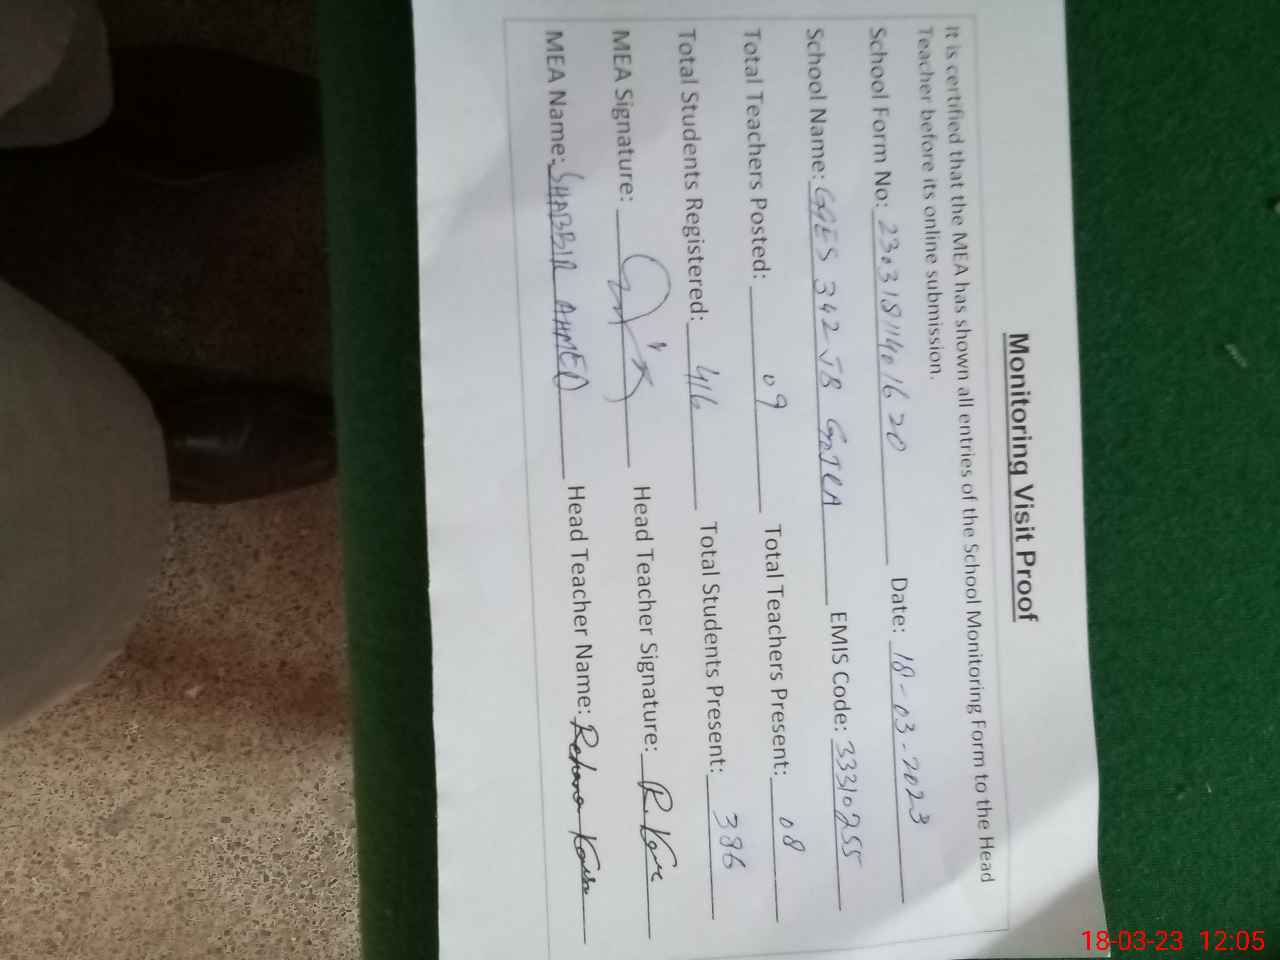 Monitoring Visit Proof
It is certified that the MEA has shown all entries of the School Monitoring Form to the Head
Teacher before its online submission.
School Form No: 23031811401620 Date: 18-03-2023
School Name: GGES 342 JB GOJRA EMIS Code: 33310255
Total Teachers Posted: 09 Total Teachers Present: 08
Total Students Registered: 416 Total Students Present: 386
MEA Signature: Head Teacher Signature:
MEA Name: SHABBIR AHMED Head Teacher Name: Rehana
18-03-23 12:05